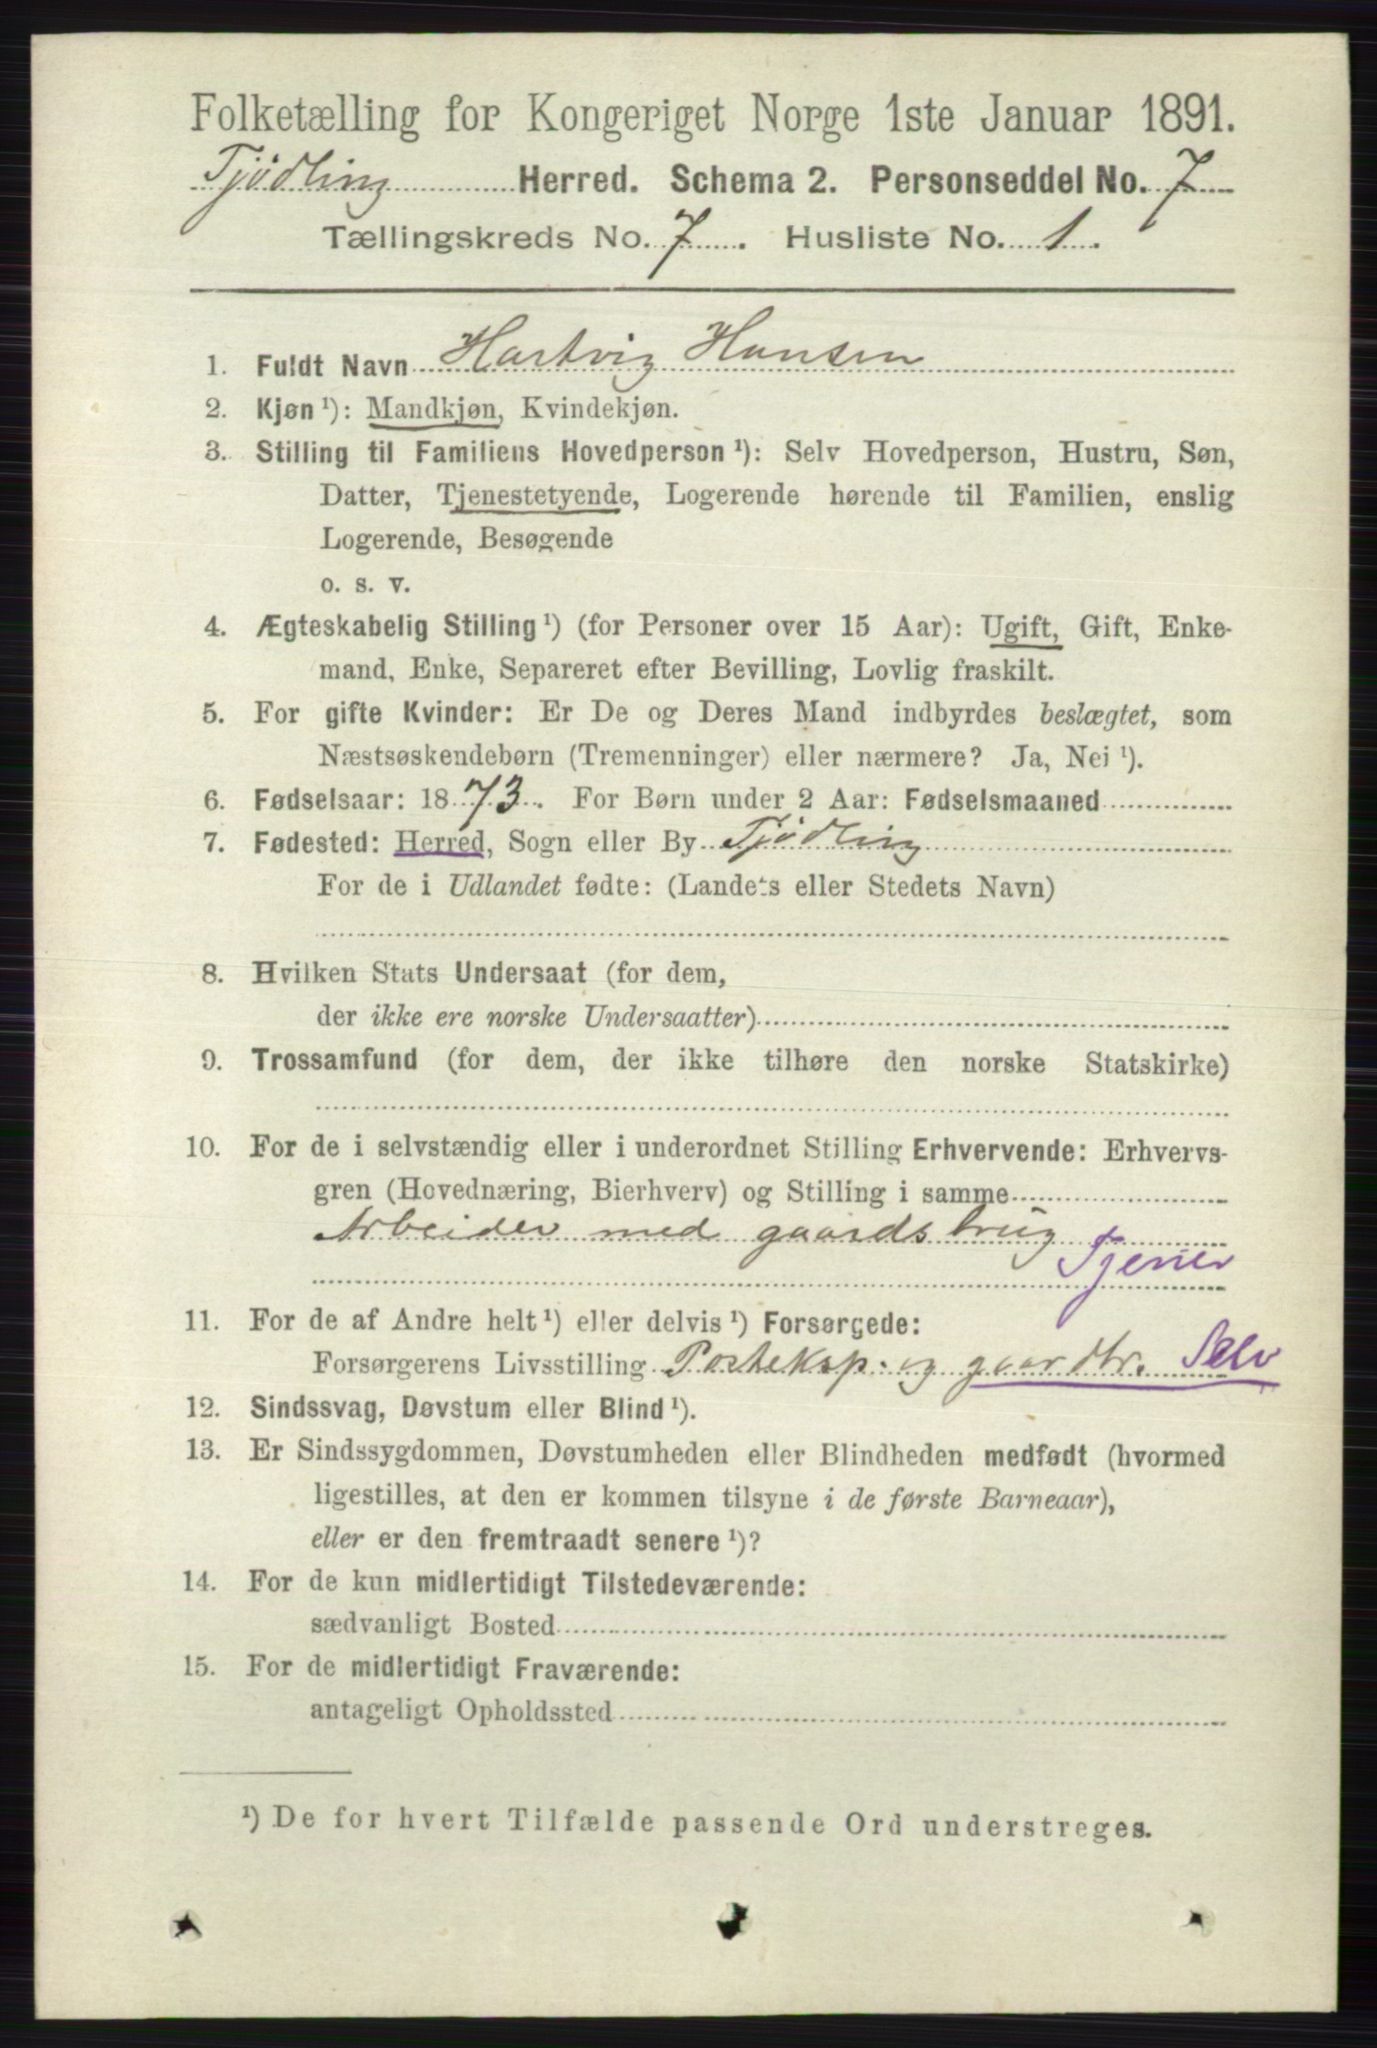 Folketælling for Kongeriget Norge 1ste Januar 1891.
Tjødling Herred. Schema 2. Personseddel No. 7
Tællingskreds No. 7. Husliste No. 1.
1. Fuldt Navn Hartvig Hansen
2. Kjøn ¹): Mandkjøn, Kvindekjøn.
3. Stilling til Familiens Hovedperson ¹): Selv Hovedperson, Hustru, Søn,
Datter, Tjenestetyende, Logerende hørende til Familien, enslig
Logerende, Besøgende
o. s. v.
4. Ægteskabelig Stilling ¹) (for Personer over 15 Aar): Ugift, Gift, Enke-
mand, Enke, Separeret efter Bevilling, Lovlig fraskilt.
5. For gifte Kvinder: Er De og Deres Mand indbyrdes beslægtet, som
Næstsøskendebørn (Tremenninger) eller nærmere? Ja, Nei ¹).
6. Fødselsaar: 1873. For Børn under 2 Aar: Fødselsmaaned
7. Fødested: Herred, Sogn eller By Tjødling
For de i Udlandet fødte: (Landets eller Stedets Navn)
8. Hvilken Stats Undersaat (for dem,
der ikke ere norske Undersaatter)
9. Trossamfund (for dem, der ikke tilhøre den norske Statskirke)
10. For de i selvstændig eller i underordnet Stilling Erhvervende: Erhvervs-
gren (Hovednæring, Bierhverv) og Stilling i samme
Arbeider med gaardsbrug
Tjener
11. For de af Andre helt ¹) eller delvis ¹) Forsørgede:
Forsørgerens Livsstilling Posteksp. og gaardbr. Selv
12. Sindssvag, Døvstum eller Blind ¹).
13. Er Sindssygdommen, Døvstumheden eller Blindheden medfødt (hvormed
ligestilles, at den er kommen tilsyne i de første Barneaar),
eller er den fremtraadt senere ¹)?
14. For de kun midlertidigt Tilstedeværende:
sædvanligt Bosted
15. For de midlertidigt Fraværende:
antageligt Opholdssted
¹) De for hvert Tilfælde passende Ord understreges.